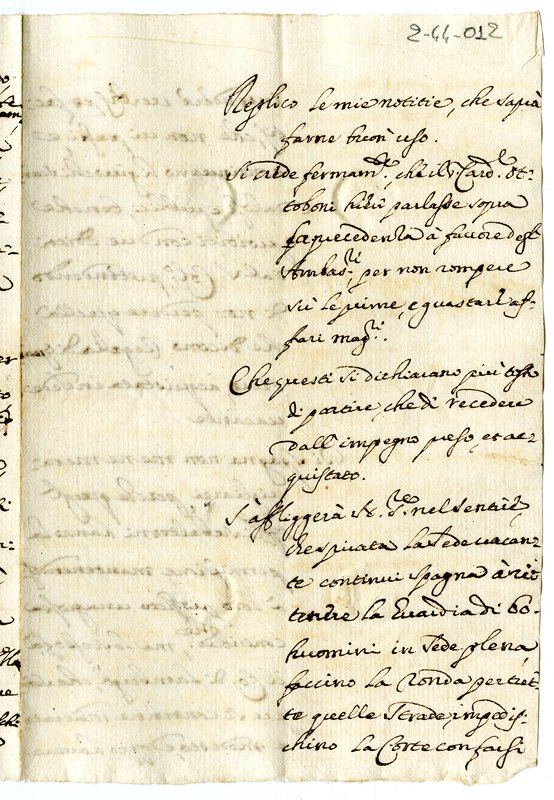 2-44-012
Replico le mie notitie, che saprà
farne buon uso.
Si crede fermam.te, che il S. Card.le Ot-
toboni hieri parlasse sopra
la precedenza à favore degl'
Ambas.ri per non rompere
sù le prime, e guastarl' af-
fari mag.ri.
Che questi si dichiarano più tosto
di partire, che di recedere
dall'impegno preso, et ac-
quistato.
S'affliggerà V.
nel sentire,
che spirata la Sede vacan-
te continui Spagna à ri-
tenere la Guardia di 60.
huomini in Sede plena,
faccino la Ronda per tut-
te quelle Strade, impedis-
chino la Corte con farsi